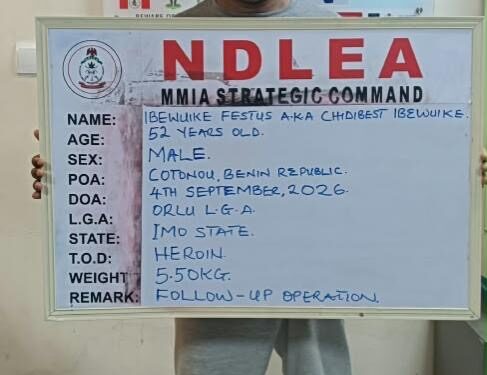 BEWARE OF
NDLEA
MMIA STRATEGIC COMMAND
NAME: IBEWUIKE FESTUS A.K.A CHIDIBEST IBEWUIKE.
AGE: 52 YEARS OLD.
SEX: MALE.
POA: COTONOU, BENIN REPUBLIC.
DOA: 4TH SEPTEMBER, 2026.
L.G.A: ORLU L.G.A.
STATE: IMO STATE.
T.O.D: HEROIN.
WEIGHT 5.50KG.
REMARK: FOLLOW-UP OPERATION.